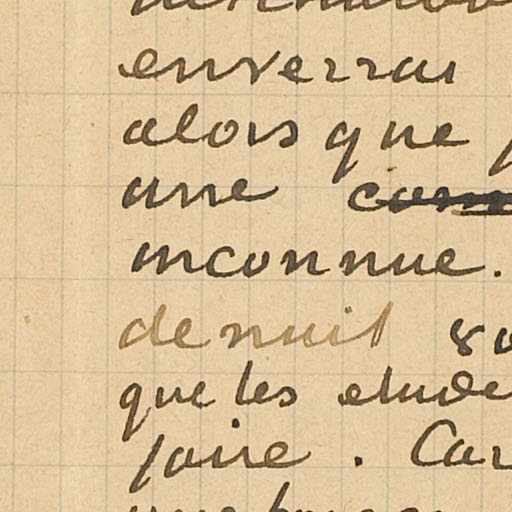 enverrai
alors que
une
inconnue.
de nuit
que les etude
faire. Car